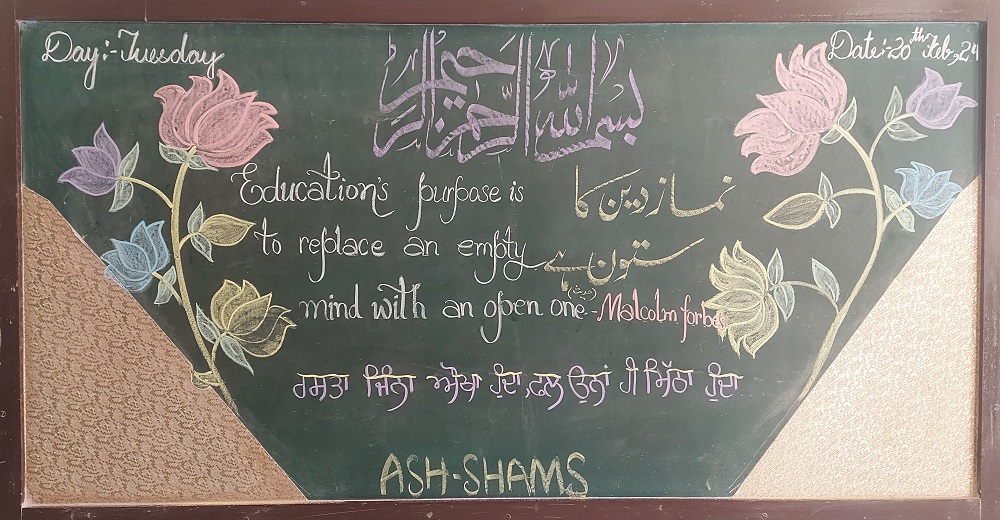 Day:-Tuesday
Date:-20th Feb, 24
بسم الله الرحمن الرحيم
Education's purpose is
to replace an empty
mind with an open one -Malcolm forbes
نماز دین کا
ستون ہے
(حدیث)
ਰਸਤਾ ਜਿੰਨਾ ਔਖਾ ਹੁੰਦਾ, ਫਲ ਉਨਾਂ ਹੀ ਮਿੱਠਾ ਹੁੰਦਾ
ASH-SHAMS